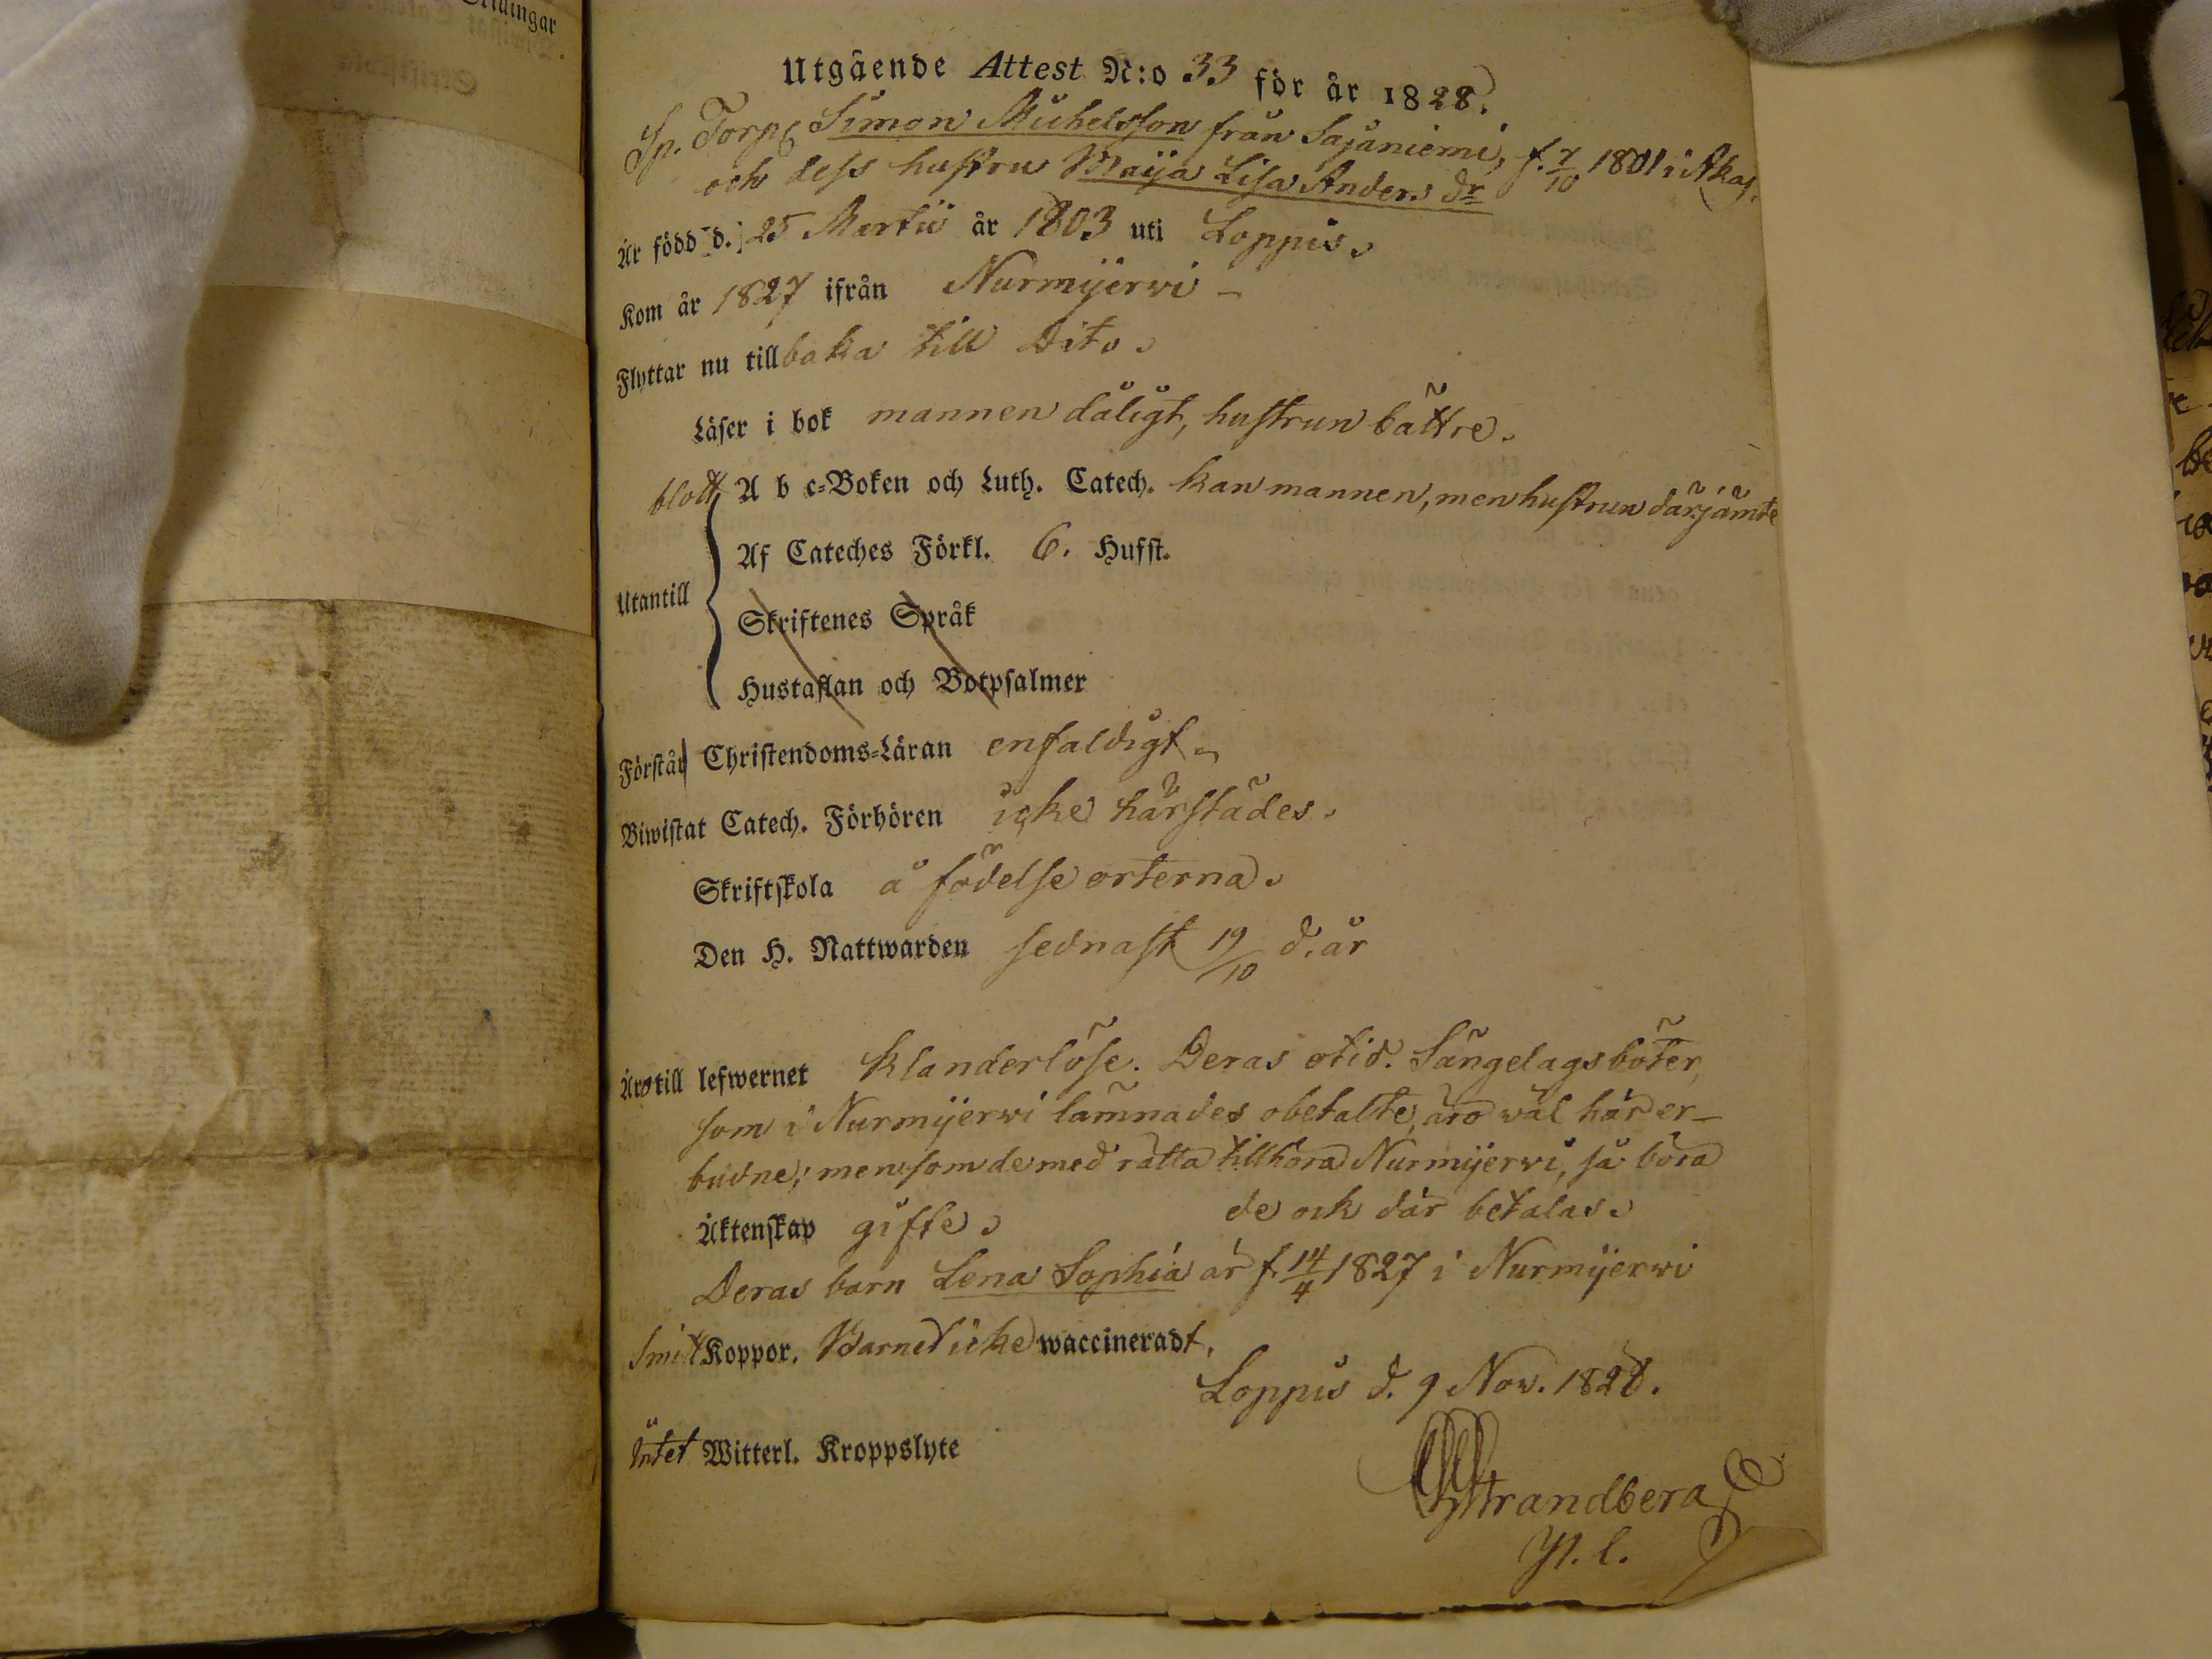 Utgående Attest N:o 33 för år 1828.
Sp. Torp. Simon Michelsson från Sajaniemi, f. 7/10 1801 i Akas,
och dess hustru Maija Lisa Anders dr
Är född d. 25 Martii år 1803 uti Loppis.
Kom år 1827 ifrån Nurmijerwi –
Flyttar nu tillbaka till Dito.
Läser i bok mannen dåligt, hustrun bättre.
blott A b c-Boken och Luth. Catech. kan mannen, men hustrun därjämte
Af Cateches Förkl. 6. Hufst.
Utantill
Skriftenes Språk
Hustaflan och Botpsalmer
Förstår Christendoms-Läran enfaldigt.
Biwistat Catech. Förhören icke härstädes.
Skriftskola å födelse orterna.
Den H. Nattwarden sednast 19/10 d. år
Äro till lefwernet klanderlöse. Deras otid. Sängelagsböter,
som i Nurmijerwi lämnades obetalte, äro wäl här er-
budne; men som de med rätta tillhöra Nurmijerwi, så böra
de ock där betalas.
Äktenskap gifte.
Deras barn Lena Sophia är f. 14/4 1827 i Nurmijerwi
Smitt Koppor. Barnet icke waccineradt.
Loppis d. 9 Nov. 1828.
Intet Witterl. Kroppslyte
Strandberg